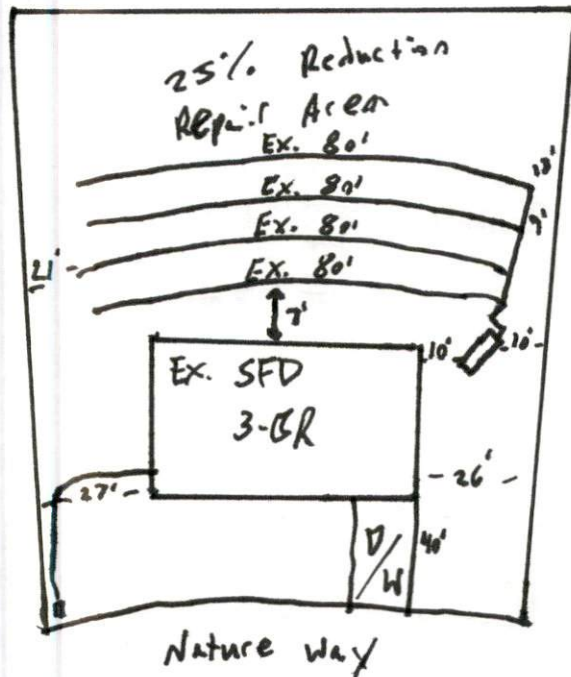 25% Reduction
Repair Area
Ex. 80'
Ex. 80'
Ex. 80'
Ex. 80'
9'
21'
7'
10'
10'
Ex. SFD
3-BR
27'
26'
D/W
40'
Nature Way